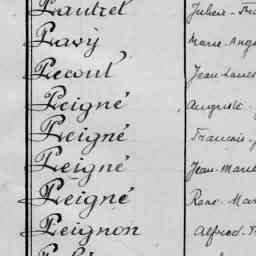 Pautrel Jules-
Pavy Marie-Ang
Pecoul Jean-Louis
Peigné Auguste-
Peigné Francois-
Peigné Jean-Marie
Peigné René-Mar
Peignon Alfred-